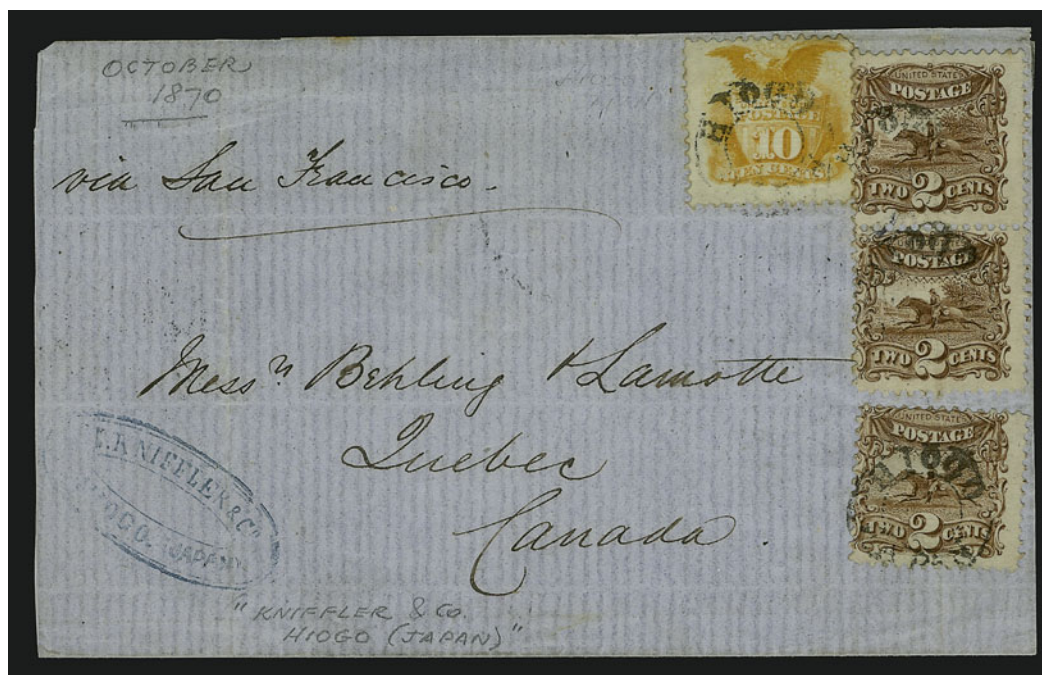 OCTOBER
1870
via San Francisco.
POSTAGE
10
TEN CENTS
UNITED STATES
POSTAGE
TWO 2 CENTS
UNITED STATES
POSTAGE
TWO 2 CENTS
UNITED STATES
POSTAGE
TWO 2 CENTS
HIOGO
HIOGO
Messrs Behling & Lamotte
Quebec
Canada.
KNIFFLER & Co
(JAPAN)
"KNIFFLER & Co.
HIOGO (JAPAN)"